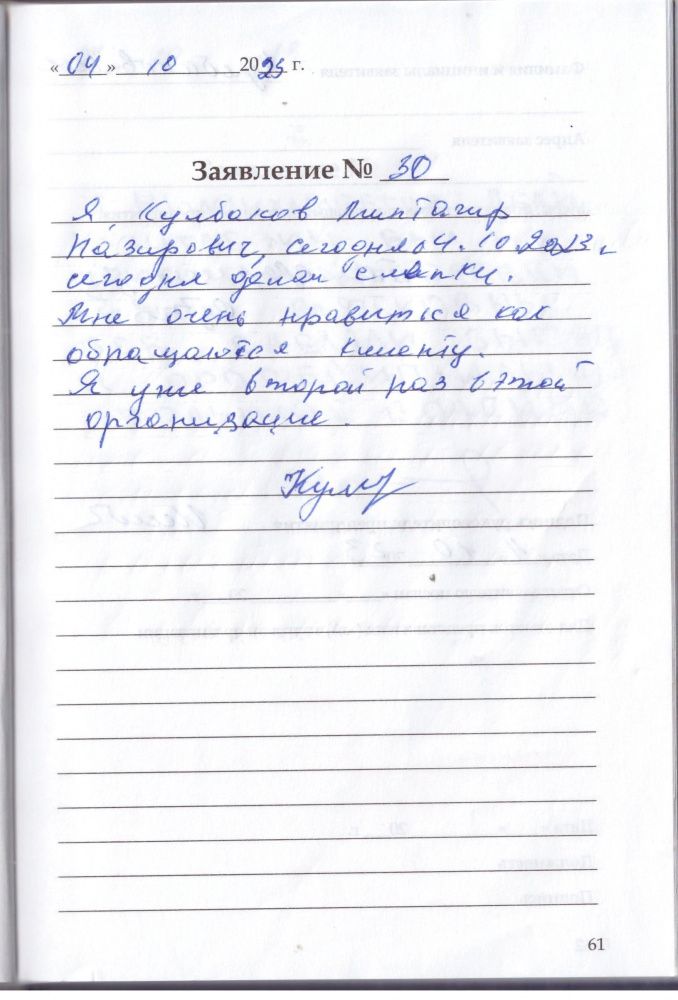 « 04 » 10 2023 г.
Заявление № 30
Я, Кулбаков
Назирович, сегодня 04.10.2023 г
сегодня делал слепки.
Мне очень нравиться как
обращаются клиенту.
Я уже второй раз в этой
организацие.
61